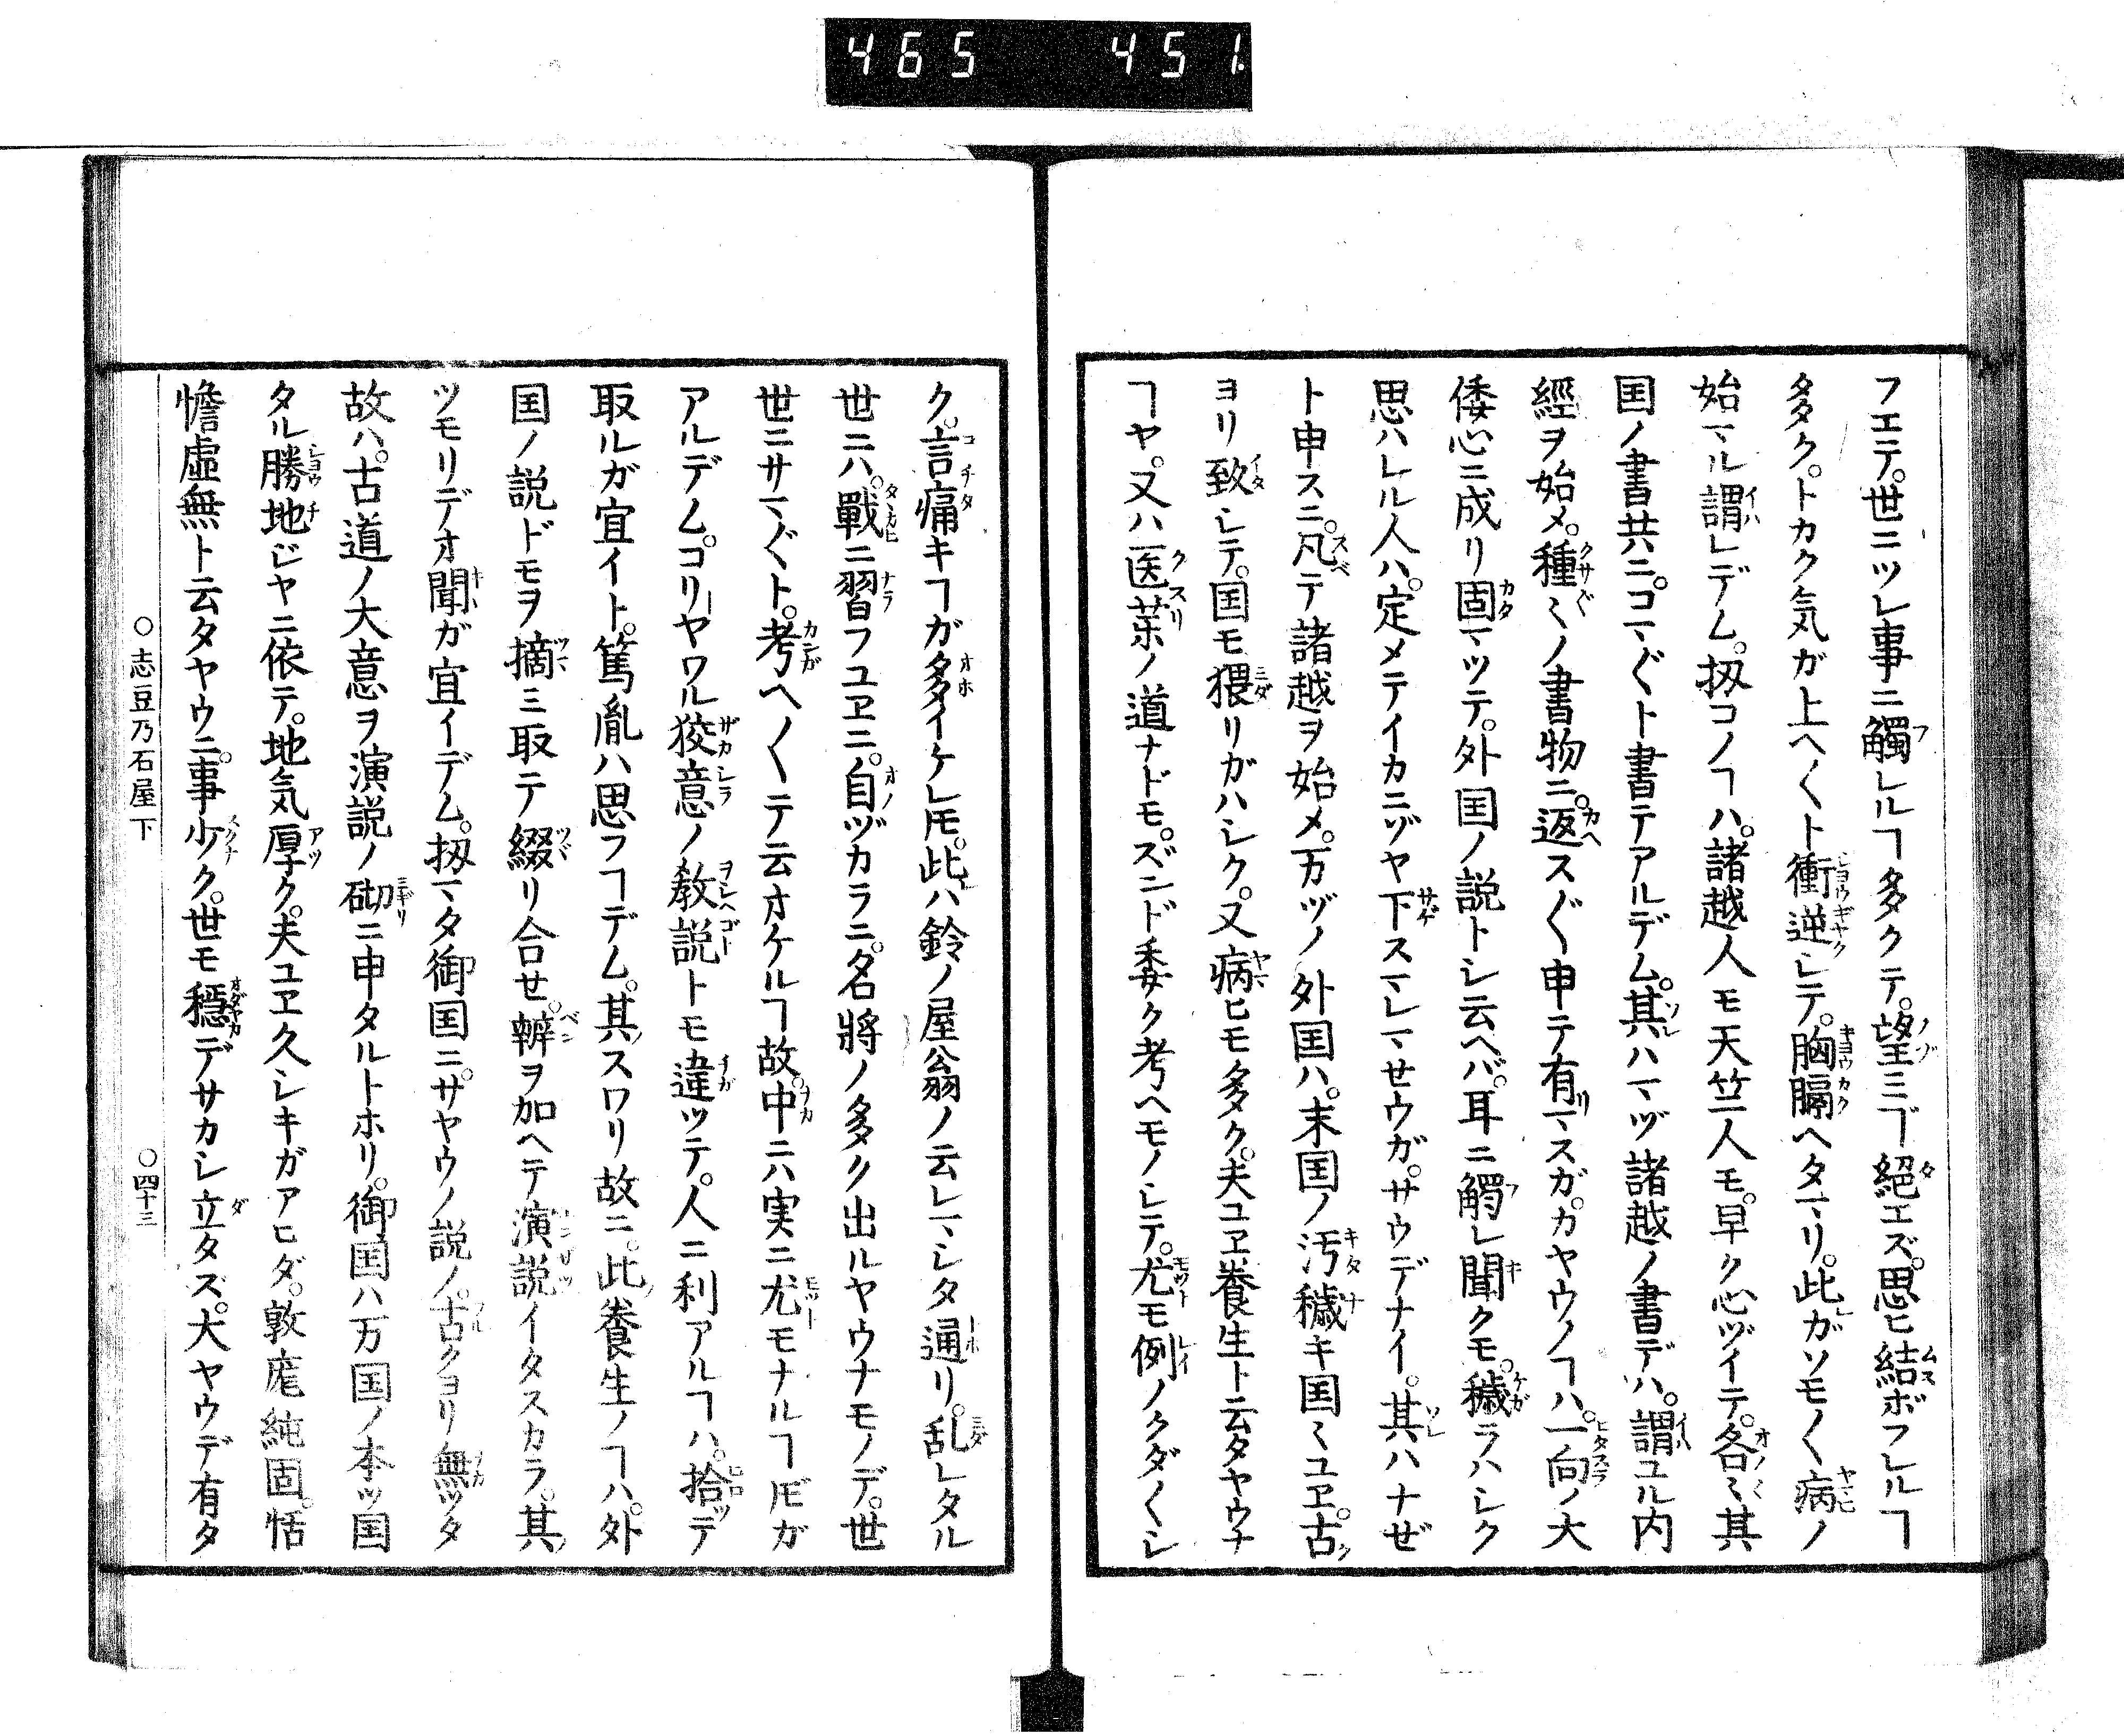 465 451.
フエテ。世ニツレ事ニ觸レルヿ多クテ。望ミヿ絕エズ。思ヒ結ボフレルヿ
多タク。トカク気ガ上ヘ〳〵ト衝逆シテ。胸膈ヘタマリ。此ガソモ〳〵病ノ
始マル謂レデム。扨コノヿハ。諸越人モ天竺人モ。早ク心ヅイテ。各〻其
国ノ書共ニ。コマ〴〵ト書テアルデム。其ハマヅ諸越ノ書デハ。謂ユル内
經ヲ始メ。種〻ノ書物ニ。返ス〴〵申テ有マスガ。カヤウノヿハ。一向ノ大
倭心ニ成リ固マツテ。外国ノ説トシ云ヘバ。耳ニ觸レ聞クモ。穢ラハシク
思ハレル人ハ。定メテイカニゾヤ下スマレマせウガ。サウデナイ。其ハナぜ
ト申スニ。凡テ諸越ヲ始メ。万ヅノ外国ハ。末国ノ汚穢キ国〻ユヱ。古
ヨリ致シテ。国モ猥リガハシク。又病ヒモ多ク。夫ユヱ養生ト云タヤウナ
ヿヤ。又ハ医薬ノ道ナドモ。ズンド委ク考ヘモノシテ。尤モ例ノクダ〳〵シ
ク。言痛キヿガ多イケレ𪜈。此ハ鈴ノ屋翁ノ云レマシタ通リ。乱レタル
世ニハ。戰ニ習フユヱニ。自ヅカラニ。名將ノ多ク出ルヤウナモノデ。世
世ニサマ〴〵ト。考ヘ〳〵テ云オケルヿ故。中ニハ実ニ尤モナルヿ𪜈ガ
アルデム。コリヤワル狡意ノ敎説トモ違ツテ。人ニ利アルヿハ。拾ツテ
取ルガ宜イト。篤胤ハ思フヿデム。其スワリ故ニ。此養生ノヿハ。外
国ノ説ドモヲ摘ミ取テ綴リ合せ。辨ヲ加ヘテ演説イタスカラ。其
ツモリデオ聞ガ宜イデム。扨マタ御国ニ。サヤウノ説ノ。古クヨリ無ツタ
故ハ。古道ノ大意ヲ演説ノ砌ニ申タルトホリ。御国ハ万国ノ本ツ国
タル勝地ヂヤニ依テ。地気厚ク。夫ユヱ久シキガアヒダ。敦庬純固。恬
憺虛無ト云タヤウニ。事少ク。世モ穩デサカシ立タズ。犬ヤウデ有タ
○志豆乃石屋下 ○四十三